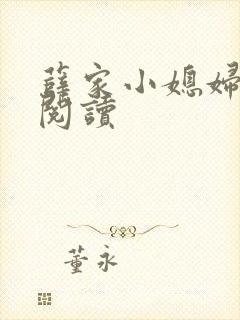 薛家小媳婦
閱讀
董永